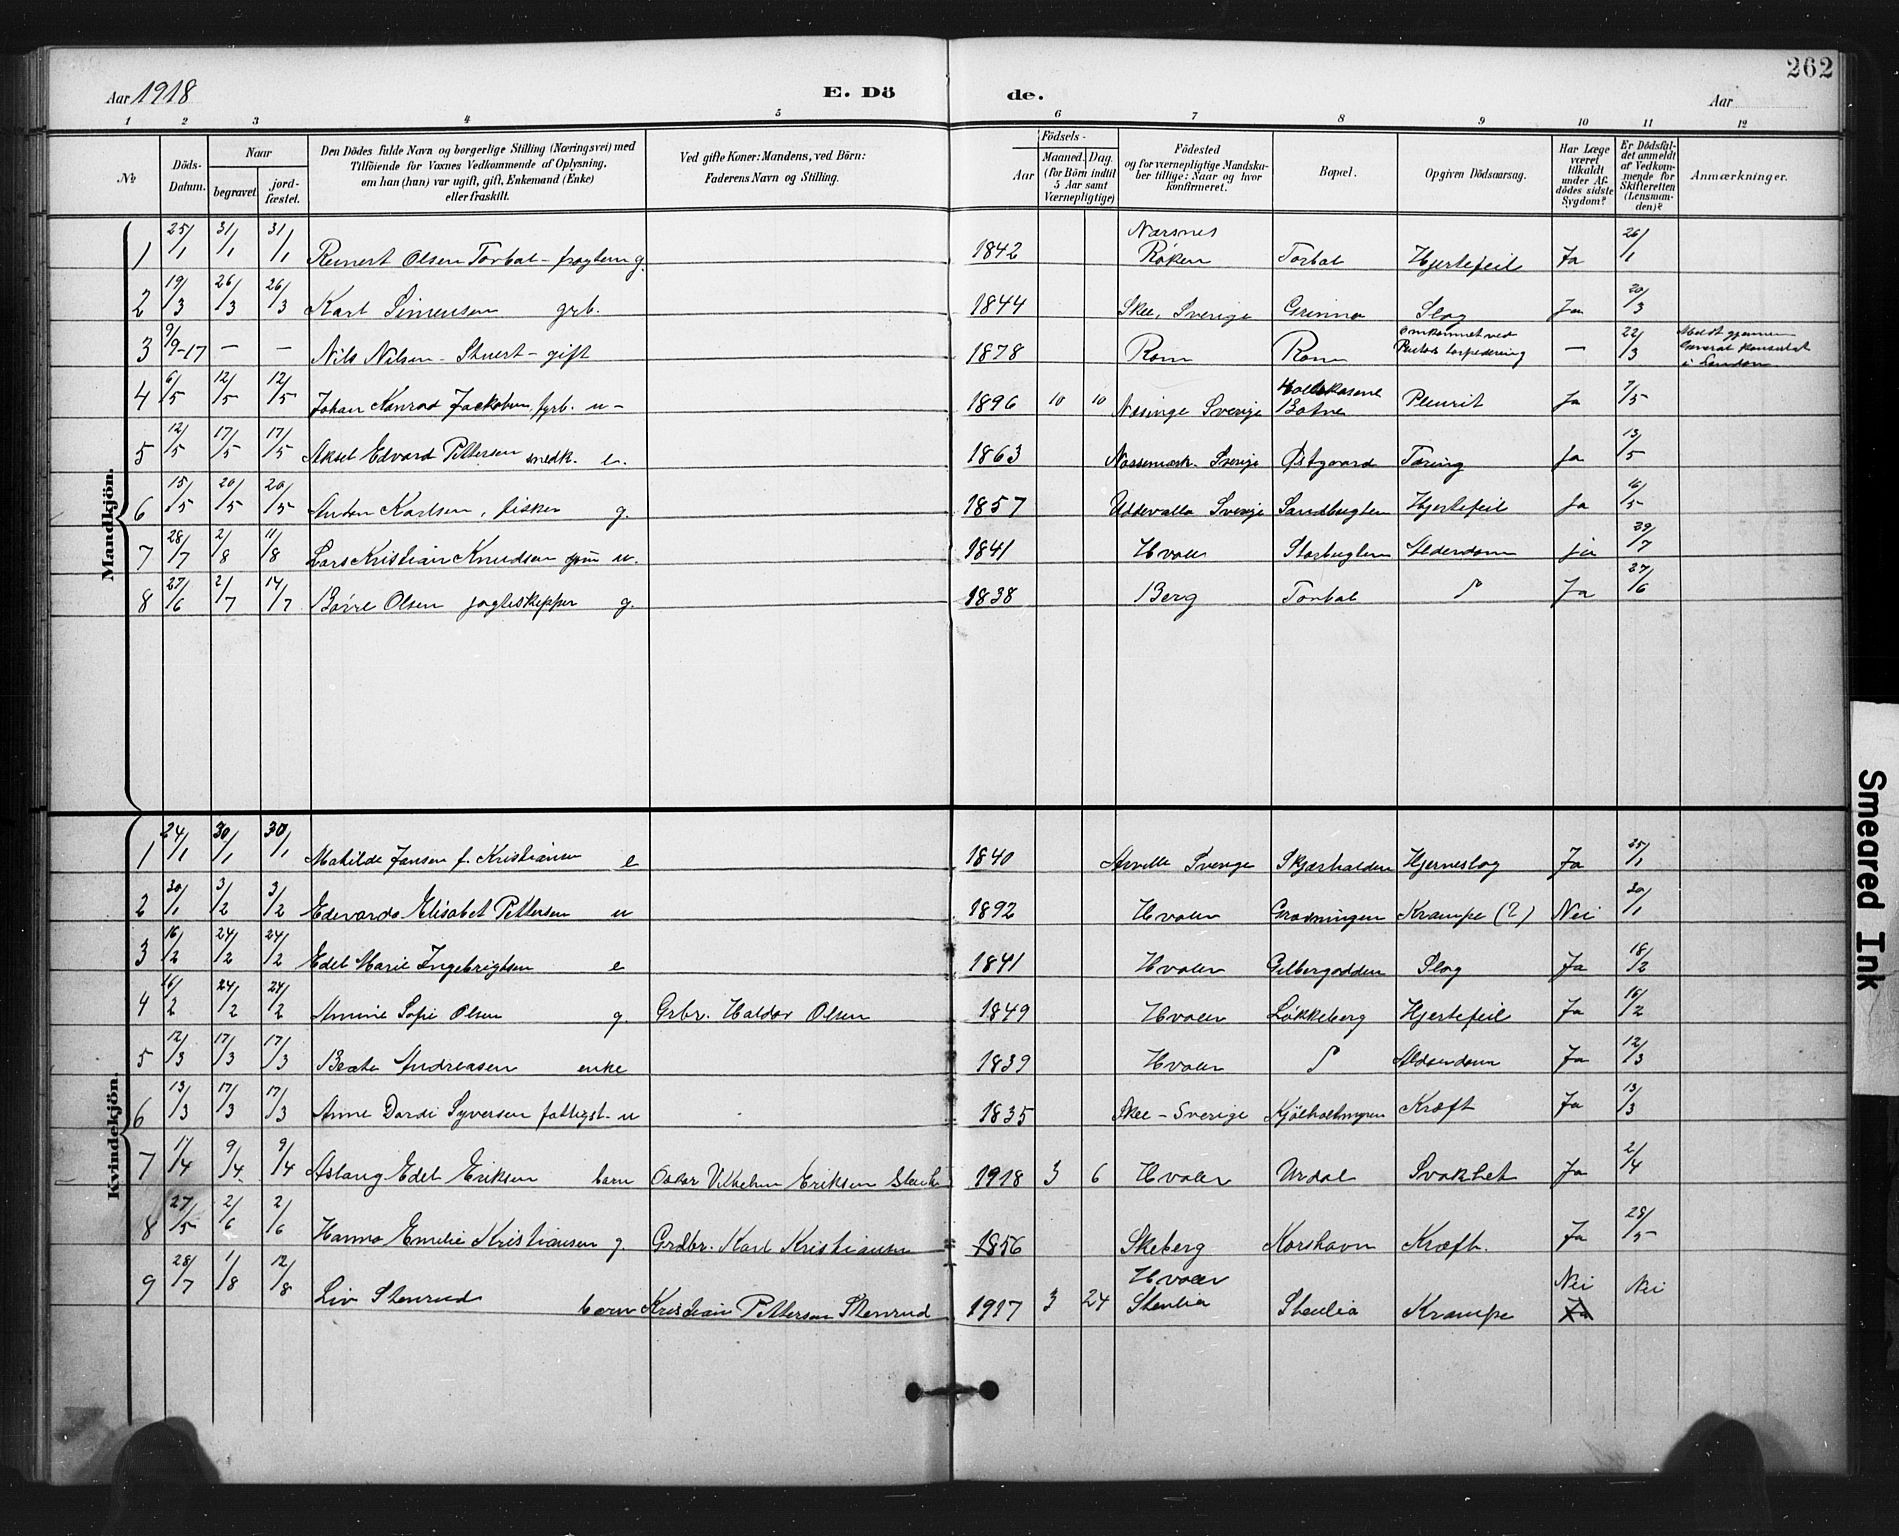 262
Aar 1918 E. Dö de. Aar
1 2 3 4 5 6 7 8 9 10 11 12
№ Döds-Datum. Naar begravet. jord-fæstet. Den Dödes fulde Navn og borgerlige Stilling (Næringsvei) med Tilföiende for Voxnes Vedkommende af Oplysning, om han (hun) var ugift, gift, Enkemand (Enke) eller fraskilt. Ved gifte Koner: Mandens, ved Börn: Faderens Navn og Stilling. Födsels- Aar Maaned. Dag. (for Börn indtil 5 Aar samt Værnepligtige) Födested og for værnepligtige Mandskaber tillige: Naar og hvor konfirmeret. Bopæl. Opgiven Dödsaarsag. Har Læge været tilkaldt under Afdödes sidste Sygdom? Er Dödsfaldet anmeldt af Vedkommende for Skifteretten (Lensmanden)? Anmærkninger.
Mandkjön.
1 25/1 31/1 31/1 Reinert Olsen Torbal g. 1842 Nærsnes Røken Torbal Hjertefeil Ja 26/1
2 19/3 26/3 26/3 Karl Simensen grb. 1844 Skee, Sverige Grimma Slag Ja 20/3
3 9/9-17 — — Nils Nilsen - Stuert - gift 1878 Rom Rom Omkommet ved torpedering — 22/3 Meldt gjennem General konsulat i London
4 6/5 12/5 12/5 Johan Konrad Jackobsen, fyrb. u - 1896 10 10 Næsinge Sverige Botne Pleurit Ja 7/5
5 12/5 17/5 17/5 Aksel Edvard Pettersen snedk. e. 1863 Nossemark. Sverige Østgaard Tæring Ja 13/5
6 15/5 20/5 20/5 Anton Karlsen, fisker g. 1857 Uddevalla Sverige Sandbugten Hjertefeil Ja 16/5
7 28/7 2/8 11/8 Lars Kristian Knudsen u. 1841 Hvaler Storbugten Alderdom ja 29/7
8 27/6 2/7 14/7 Børre Olsen jagteskipper g. 1838 Berg Torbal Ja 27/6
Kvindekjön.
1 24/1 30/1 30/1 Matilde Jansen f. Kristiansen e 1840 Sverige Skjærhalden Hjerneslag Ja 25/1
2 30/1 3/2 3/2 Edevarda Elisabet Pettersen u 1892 Hvaler Grønningen Krampe (?) Nei 30/1
3 16/2 24/2 24/2 Edel Marie Ingebrigtsen e 1841 Hvaler Gilbergodden Slag Ja 18/2
4 16/2 24/2 24/2 Amine Sofie Olsen g. Grbr. Haldor Olsen 1849 Hvaler Løkkeberg Hjertefeil Ja 16/2
5 12/3 17/3 17/3 Beate Andreasen enke 1839 Hvaler Alderdom Ja 12/3
6 13/3 17/3 17/3 Anne Dorde Syversen fattigst. u 1835 Skee - Sverige Kjølholtmyren Kræft Ja 13/3
7 1/4 9/4 9/4 Aslaug Edel Eriksen barn Oskar Vilhelm Eriksen 1918 3 6 Hvaler Urdal Svakhet Ja 2/4
8 27/5 2/6 2/6 Hanna Emilie Kristiansen g. Grdbr. Karl Kristiansen 1856 Skeberg Korshavn Kræft. Ja 28/5
9 28/7 1/8 12/8 Liv Stenrud barn Kristian Pettersen Stenrud 1917 3 24 Hvaler Stenlia Stenlia Krampe Nei Ja Nei
Smeared Ink